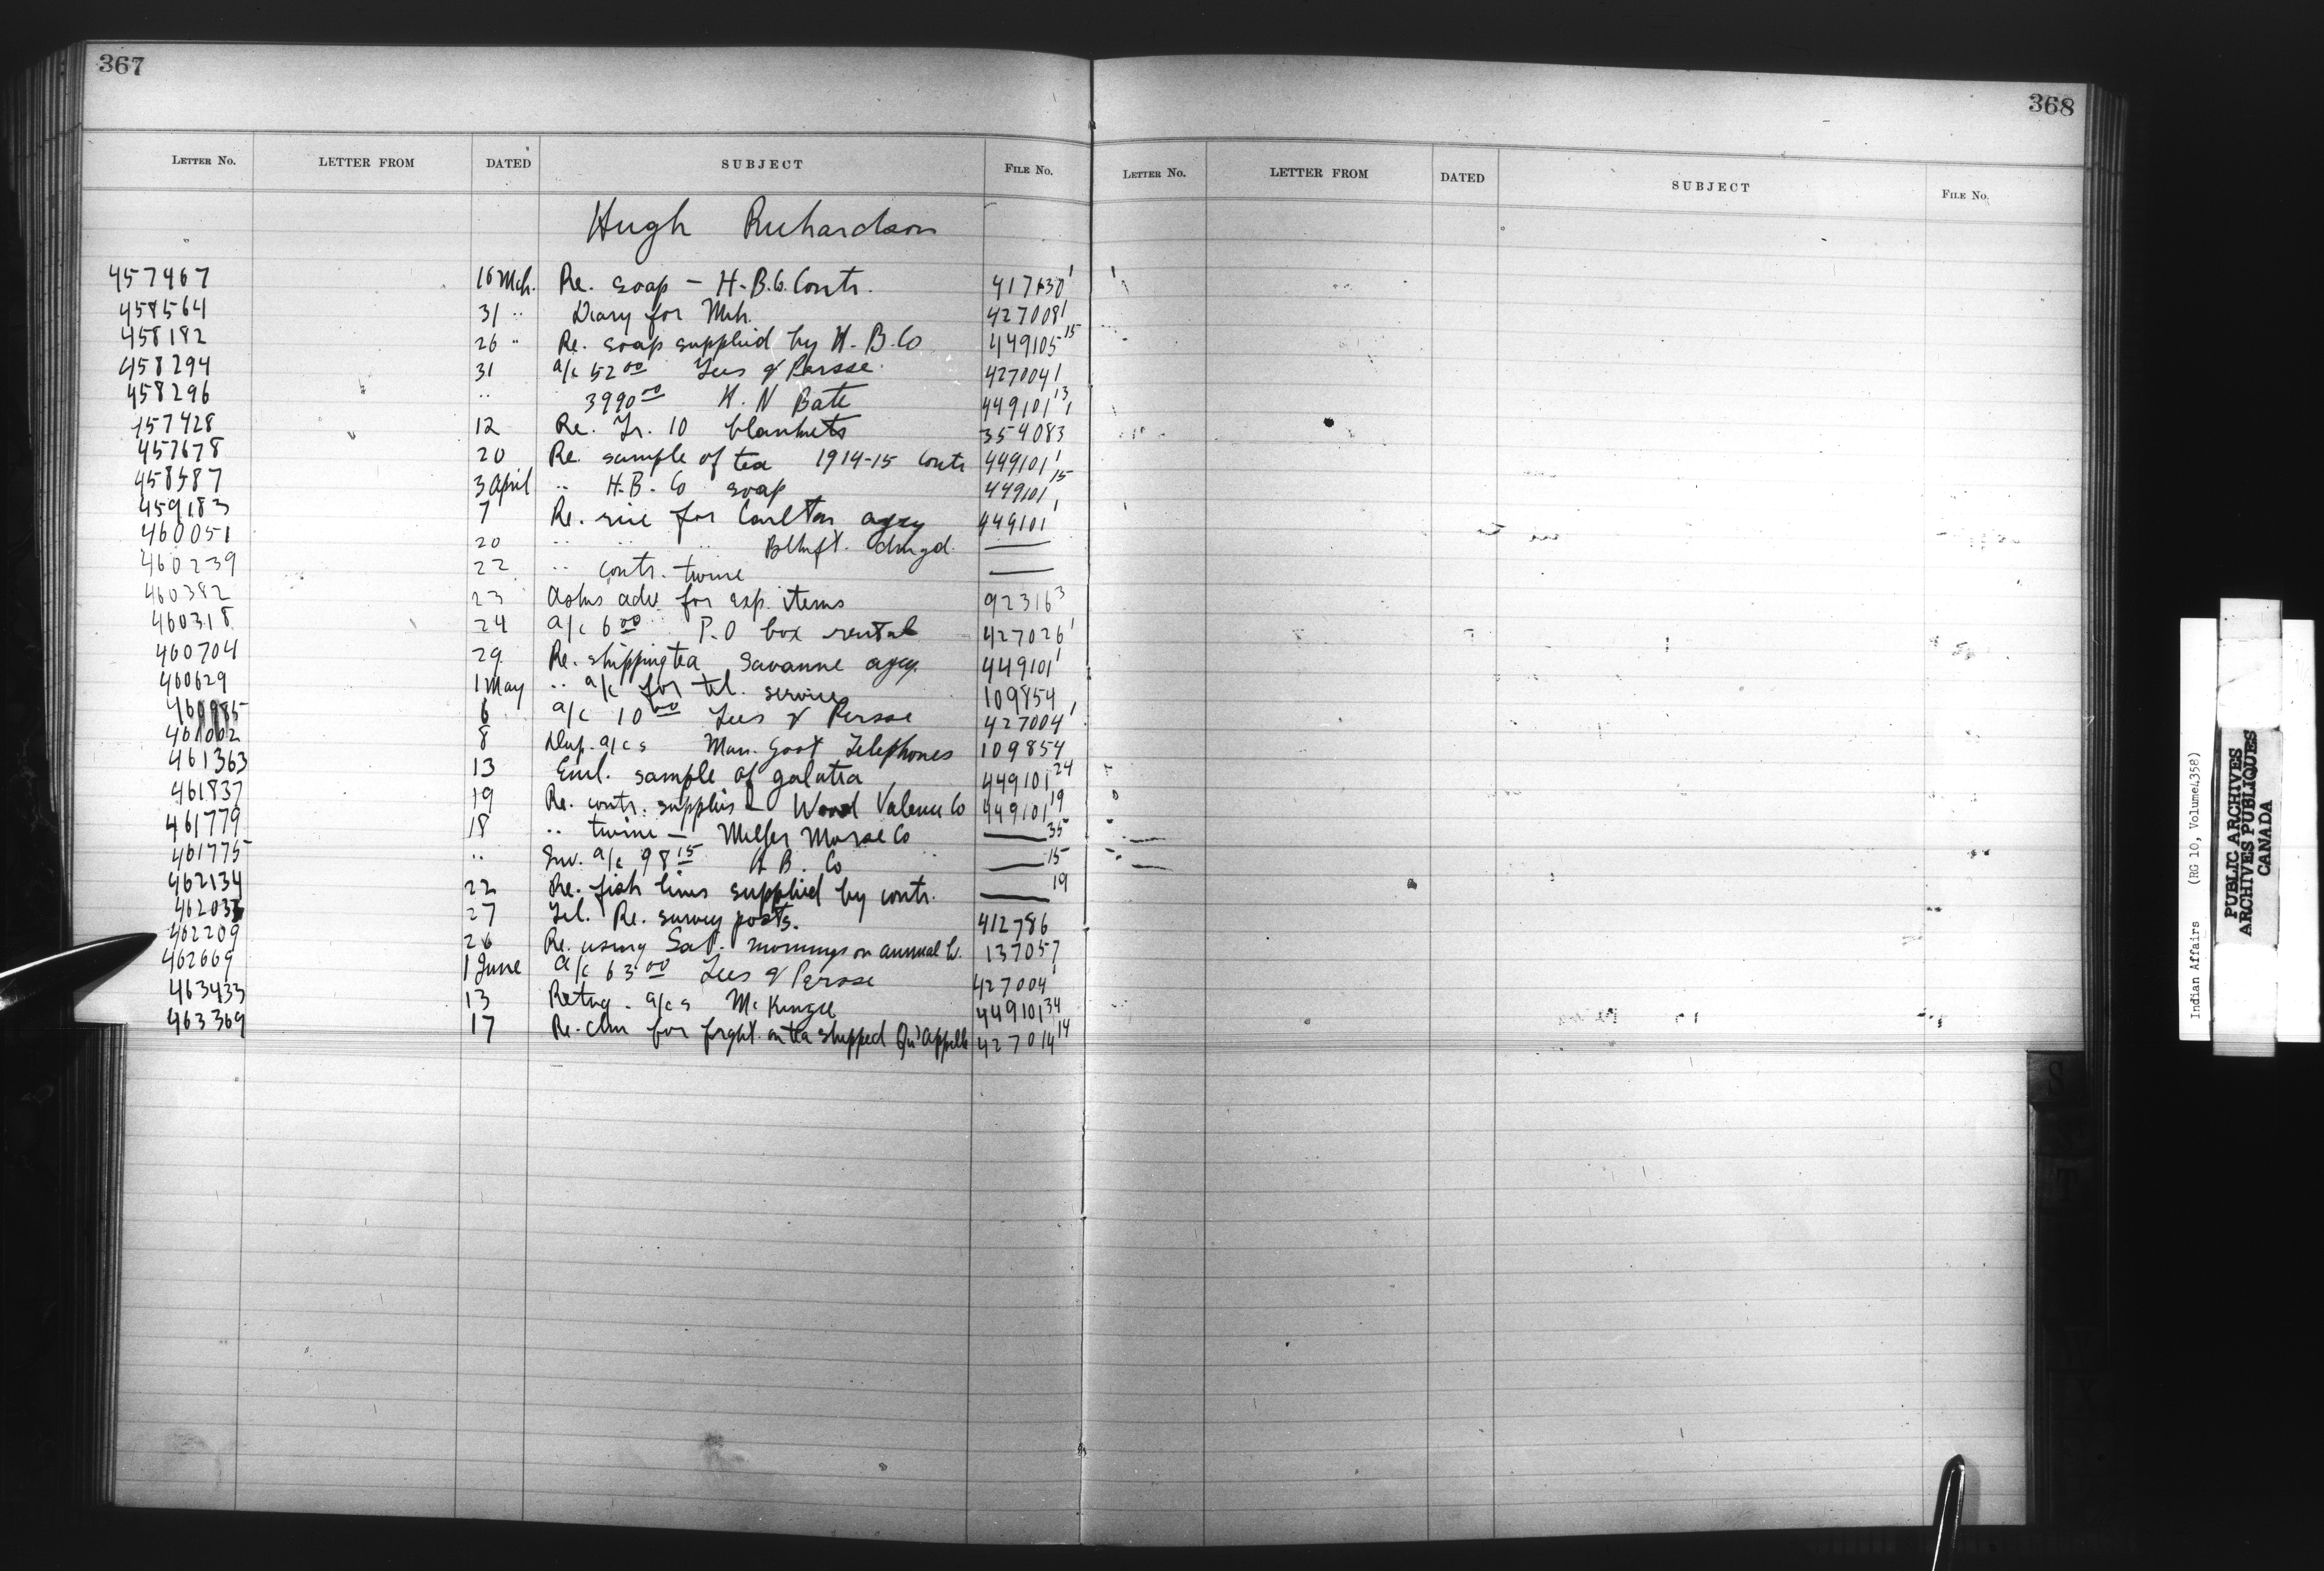 367
LETTER No. LETTER FROM DATED SUBJECT FILE No.
Hugh Richardson
457467 16 Mch. Re. soap - H.B.Co. Contr. 417630¹
458564 31 " Diary for Mch. 427008¹
458182 26 " Re. soap supplied by H.B.Co 449105¹⁵
458294 31 a/c 52⁰⁰ Lees & Persse 427004¹
458296 " 3990⁰⁰ H. N Bate 449101¹³
457428 12 Re. Tr. 10 blankets 354083¹
457678 20 Re. sample of tea 1914-15 contr 449101¹
458587 3 April " H.B. Co soap 449101¹⁵
459183 7 Re. rice for Carlton agcy 449101¹
460051 20 " " " Btlfd. dmgd. —
460239 22 " contr. twine —
460382 23 Asks adv. for exp. items 92316³
460318 24 a/c 6⁰⁰ P.O box rental 427026¹
460704 29 Re. shipping tea Savanne agcy. 449101¹
460629 1 May " a/c for tel. services 109854
460985 6 a/c 10⁰⁰ Lees & Persse 427004¹
461002 8 Dup. a/cs Man. Govt Telephones 109854
461363 13 Encl. sample of galatea 449101²⁴
461837 19 Re. contr. supplies - Wood Valence Co 449101¹⁹
461779 18 " twine - Miller Morse Co —³⁵
461775 " Inv. a/c 98¹⁵ H B. Co —¹⁵
462134 22 Re. fish lines supplied by contr. —¹⁹
46203 27 Tel. Re. survey posts. 412786
462209 26 Re. using Sat. mornings on annual lv. 137057
462669 1 June a/c 63⁰⁰ Lees & Persse 427004¹
463433 13 Retng. a/cs McKenzie 449101³⁴
463369 17 Re. clm for frght. on tea shipped Qu'Appelle 427014¹⁴
368
LETTER No. LETTER FROM DATED SUBJECT FILE No.
S
T
Indian Affairs (RG 10, Volume 4358)
PUBLIC ARCHIVES
ARCHIVES PUBLIQUES
CANADA